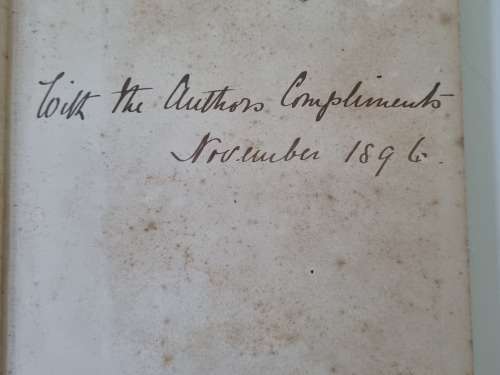 With the Authors Compliments
November 1896.